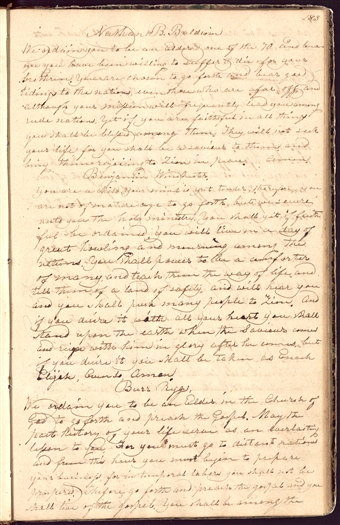 183
Nathan B. Baldwin
We ordain you to be an Elder, one of the 70.
you have been willing to suffer & die for your
brethren, you are chosen to go forth and bear good
tidings to the nations, even those who are afar off, and
although your mission will frequently lead you among
rude nations, yet if you are faithful in all things
you shall be blessed among them. They will not seek
your life for you shall be a saviour to them, and
bring them rejoicing to Zion in peace. Amen.
Benjamin Winchester
You are a child, Your mind is yet tender, therefore, you are
not of mature age to go forth, but
the holy ministry, You shall yet if faith
ful be ordained, you will live in a day of
great howling and mourning among the
nations, You shall power to be a comforter
of many, and teach them the way of life, and
tell them of a land of safety, and will hear you
and you shall push many people to Zion, And
if you desire it with all your heart you shall
stand upon the earth when the Saviour comes
and reign with him in glory after he comes, but
if you desire it you shall be taken as Enoch
Elijah, Amen.
Burr Rigs,
We ordain you to be an Elder in the Church of
God to go forth and preach the Gospel. May the
past history of your life serve as an everlasting
lesson to you. For you must go to distant nations
and from this hour you must begin to prepare
your business, for in temporal labors you shall not be
prospered, Therefore go forth and preach the gospel and you
shall live of the gospel, you shall be among the